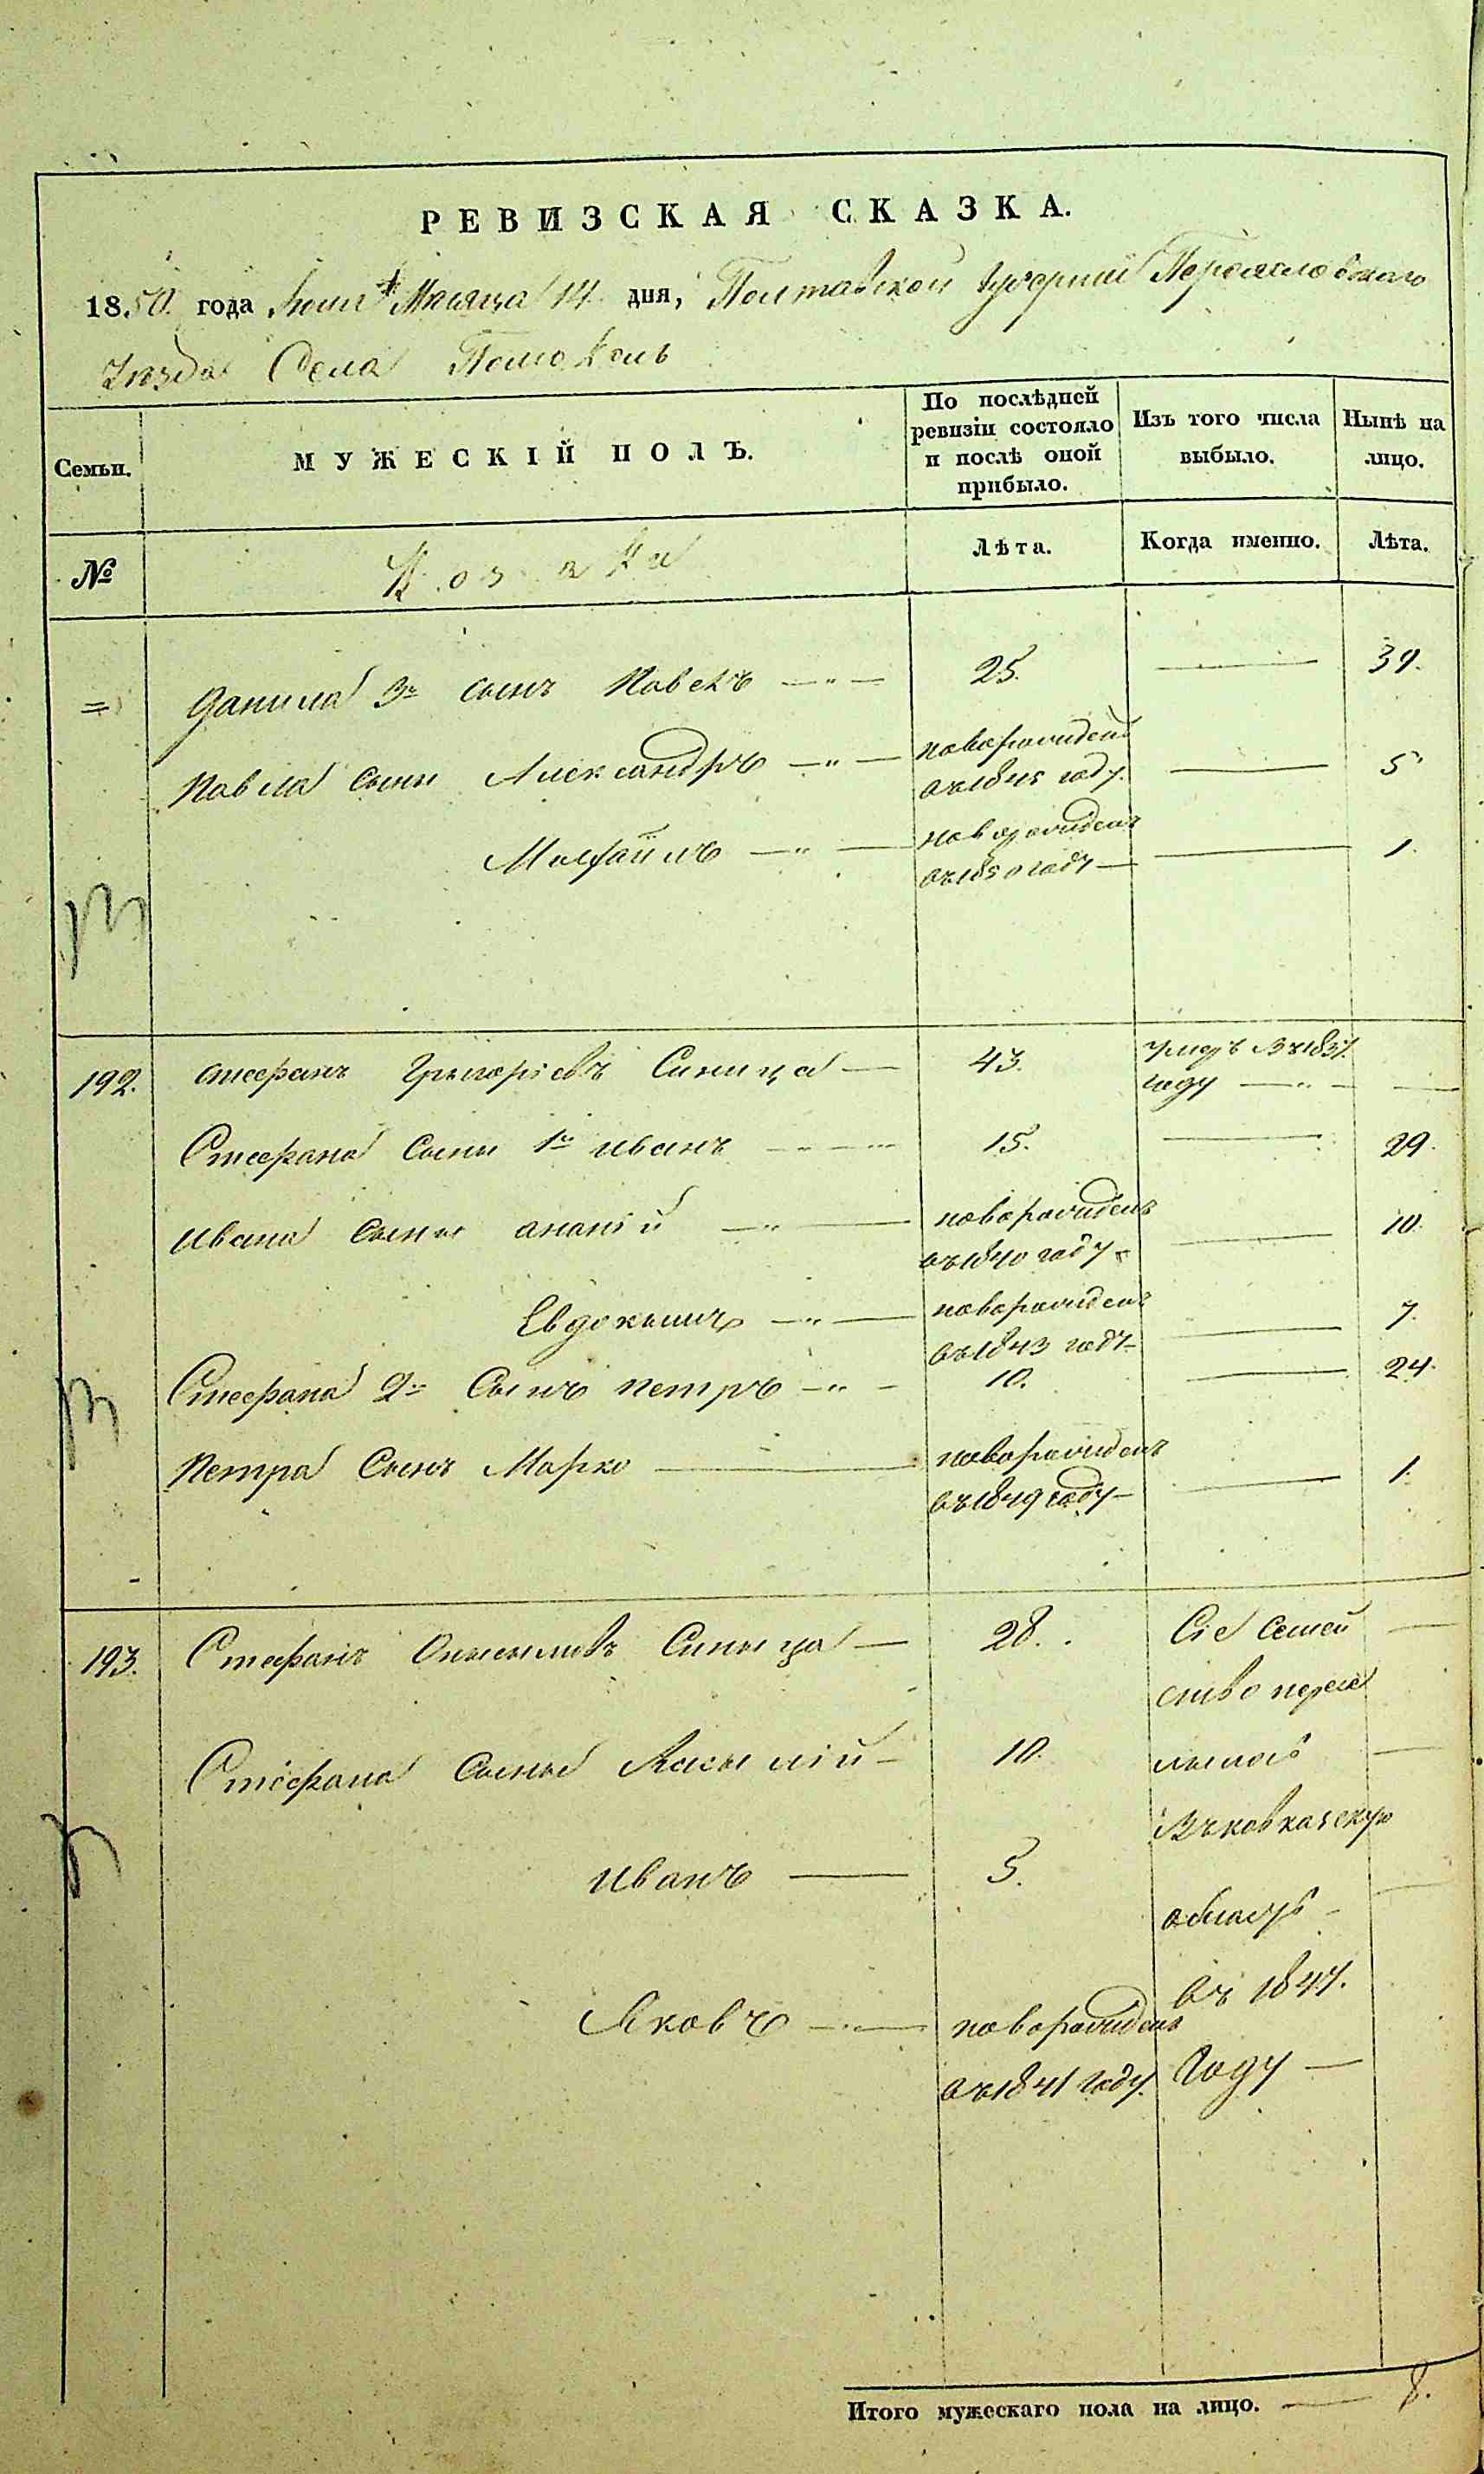 РЕВИЗСКАЯ СКАЗКА.
1850. года Июня Месяца 14 дня, Полтавской губернии Переясловского
Уезда Села Помокель
Семьи. МУЖЕСКІЙ ПОЛЪ. По послѣдней ревизіи состояло и послѣ оной прибыло. Изъ того числа выбыло. Нынѣ на лицо.
№ Козаки Лѣта. Когда именно. Лѣта.
= Данила 3й сынъ Павелъ 25. 39.
Павла сыны Александръ новорожденъ въ 1845 году. 5
Михаилъ новорожденъ въ 1850 году 1
192. Стефанъ Григоріевъ Синица 43. умеръ въ 1837. году
Стефана сыны 1й Иванъ 15. 29.
Ивана сыны Ананій новорожденъ въ 1840 году 10.
Евдокимъ новорожденъ въ 1843 году 7.
Стефана 2й сынъ Петръ 10. 24.
Петра сынъ Марко новорожденъ въ 1849 году 1.
193. Стефанъ Синица 28. Сіе семей
ство пересе
Стефана сыны 10. лилось
Въ кавказскую
Иванъ 5.
область
въ 1847.
Яковъ новорожденъ
въ 1841 году. году
Итого мужескаго пола на лицо. 8.